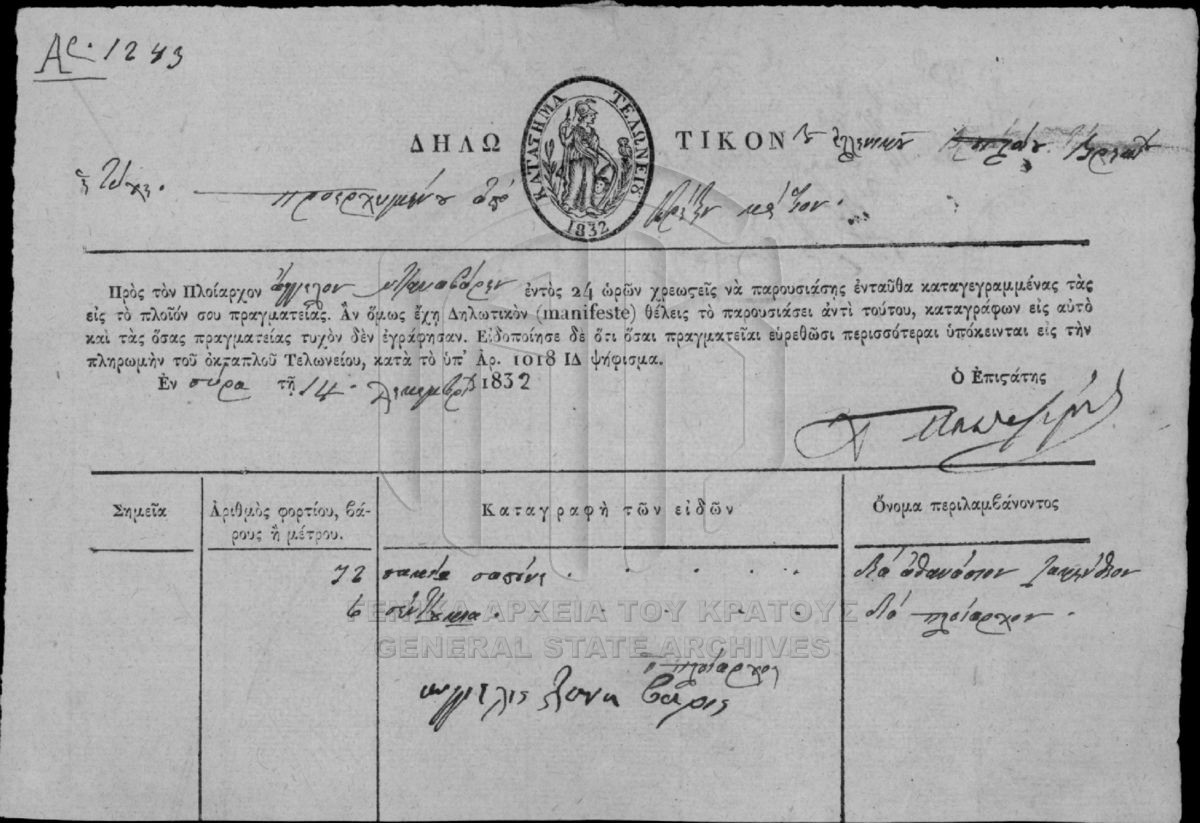 Αρ. 1243
ΔΗΛΩΤΙΚΟΝ
ΚΑΤΑΣΤΗΜΑ ΤΕΛΩΝΕΙΟ
1832
προερχομένου ἀπὸ
Πρὸς τὸν Πλοίαρχον ἐντὸς 24 ὡρῶν χρεωϛεῖς νὰ παρουσιάσης ἐνταῦθα καταγεγραμμένας τὰς
εἰς τὸ πλοῖόν σου πραγματείας. Ἂν ὅμως ἔχῃ Δηλωτικὸν (manifeste) θέλεις τὸ παρουσιάσει ἀντὶ τούτου, καταγράφων εἰς αὐτὸ
καὶ τὰς ὅσας πραγματείας τυχὸν δὲν ἐγράφησαν. Εἰδοποίησε δὲ ὅτι ὅσαι πραγματεῖαι εὑρεθῶσι περισσότεραι ὑπόκεινται εἰς τὴν
πληρωμὴν τοῦ ὀκταπλοῦ Τελωνείου, κατὰ τὸ ὑπ' Ἀρ. 1018 ΙΔ ψήφισμα.
Ἐν σύρα τῇ 14 δεκεμβρίου 1832
Ὁ Ἐπιϛάτης
Σημεῖα
Ἀριθμὸς φορτίου, βάρους ἢ μέτρου.
Καταγραφὴ τῶν εἰδῶν
Ὄνομα περιλαμβάνοντος
72 σακιά σαπούνι διά ἀθανάσιον
6 διά πλοίαρχον
ο πλοίαρχος
ΓΕΝΙΚΑ ΑΡΧΕΙΑ ΤΟΥ ΚΡΑΤΟΥΣ
GENERAL STATE ARCHIVES